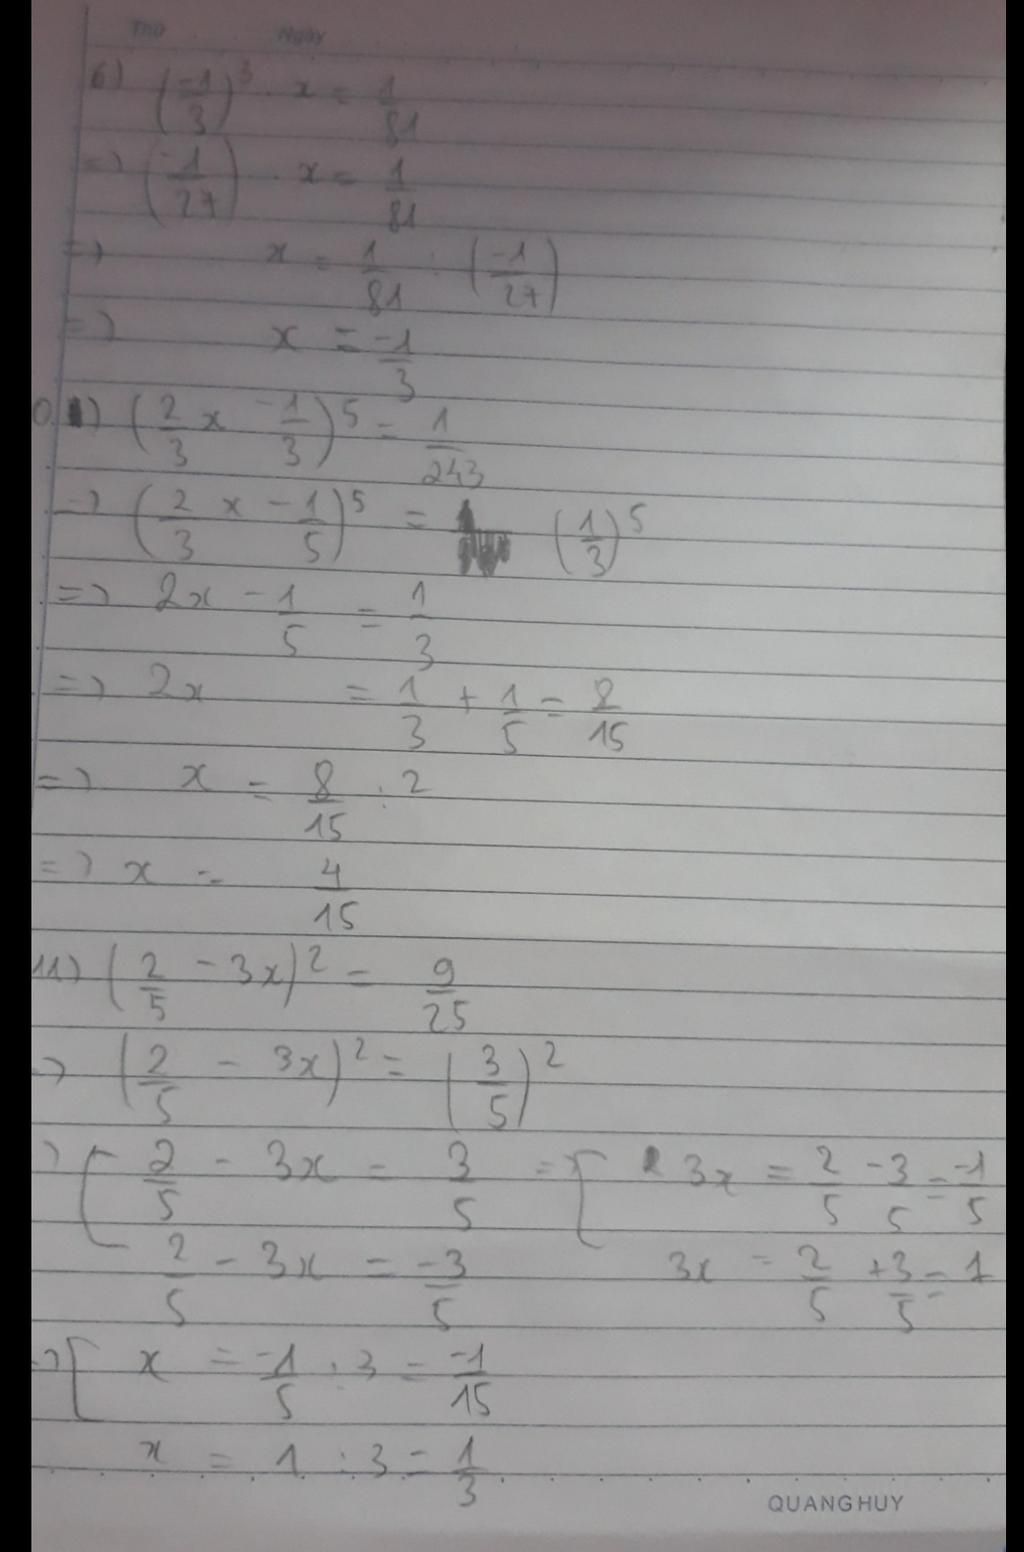 Thứ Ngày
6) (-1/3)^3 . x = 1/81
=> (-1/27) . x = 1/81
=> x = 1/81 : (-1/27)
=> x = -1/3
0.1) (2/3 x - 1/3)^5 = 1/243
=> (2/3 x - 1/5)^5 = (1/3)^5
=> 2x - 1/5 = 1/3
=> 2x = 1/3 + 1/5 = 8/15
=> x = 8/15 : 2
=> x = 4/15
11) (2/5 - 3x)^2 = 9/25
=> (2/5 - 3x)^2 = (3/5)^2
=> [ 2/5 - 3x = 3/5 => [ 3x = 2/5 - 3/5 = -1/5
2/5 - 3x = -3/5 3x = 2/5 + 3/5 = 1
=> [ x = -1/5 : 3 = -1/15
x = 1 : 3 = 1/3
QUANG HUY